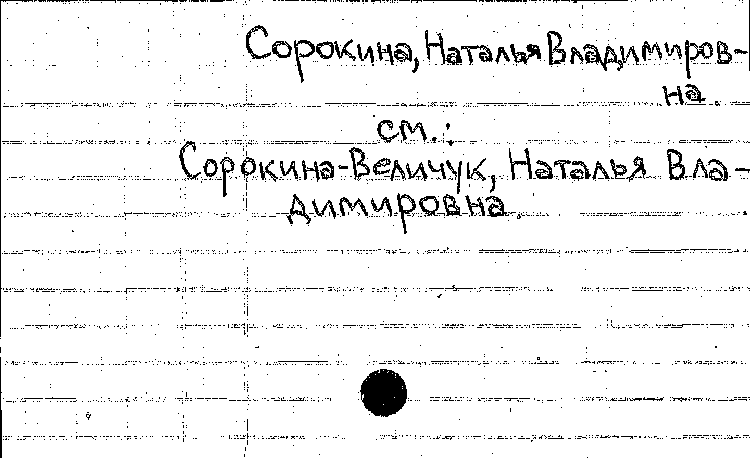 Сорокина, Наталья Владимиров-
на.
см.:
Сорокина-Величук, Наталья Вла-
димировна.